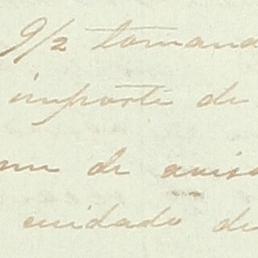 9/2 tomand
importe de
me de aviso
cuidado de